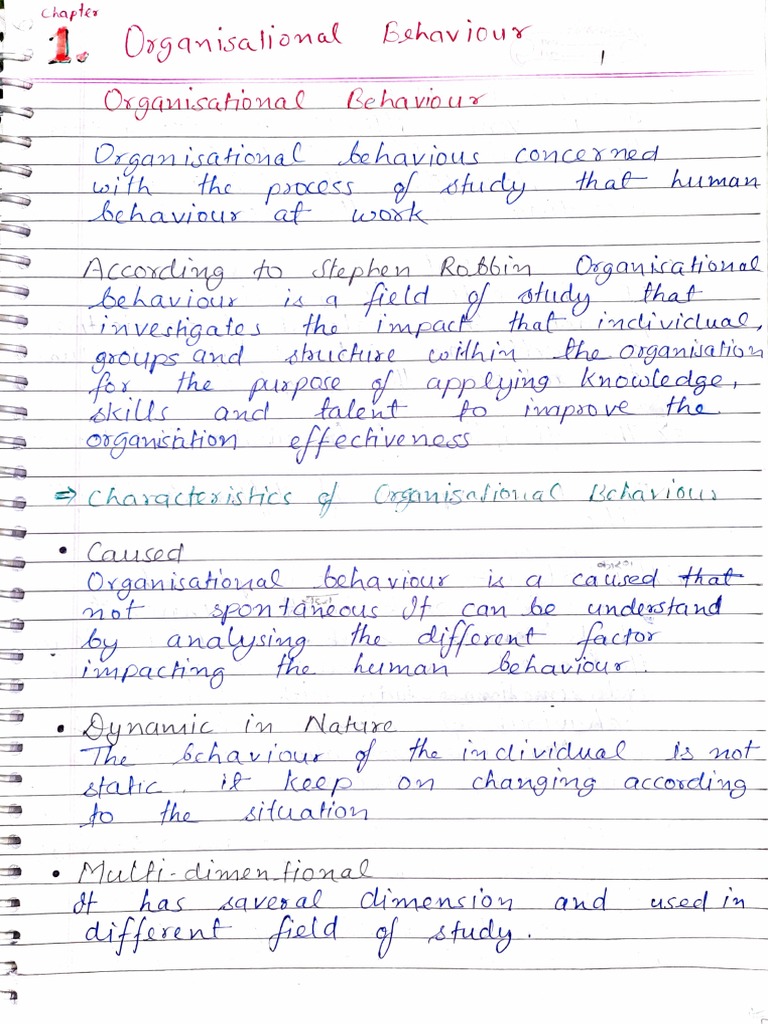 Chapter
1. Organisational Behaviour
1
Organisational Behaviour
Organisational behavious concerned
with the process of study that human
behaviour at work
According to Stephen Robbin Organisational
behaviour is a field of study that
investigates the impact that individual,
groups and structure within the organisation
for the purpose of applying knowledge,
skills and talent to improve the
organisation effectiveness
⇒ Characteristics of Organisational Behaviour
• Caused
Organisational behaviour is a caused that
not spontaneous It can be understand
by analysing the different factor
impacting the human behaviour.
• Dynamic in Nature
The behaviour of the individual is not
static. it keep on changing according
to the situation
• Multi-dimentional
It has saveral dimension and used in
different field of study.